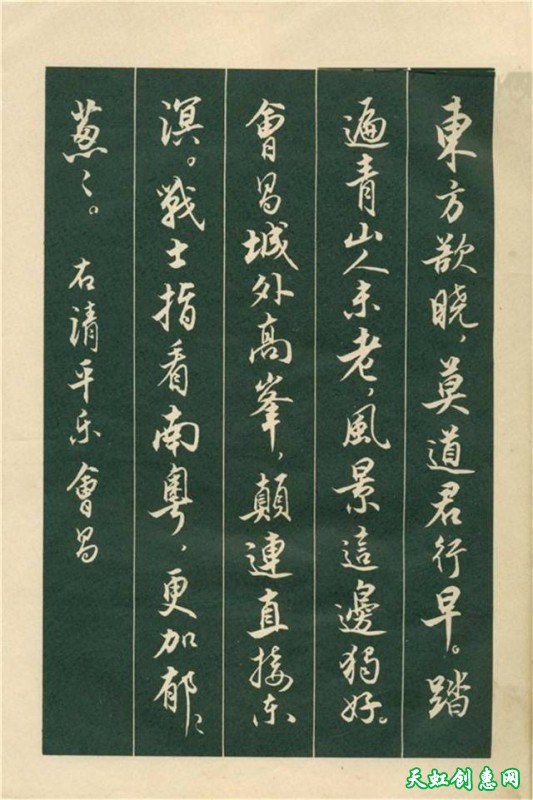 東方欲曉，莫道君行早。踏
遍青山人未老，風景這邊獨好。
會昌城外高峯，顛連直接东
溟。戰士指看南粵，更加郁〻
葱〻。 右清平乐 會昌
天虹创惠网